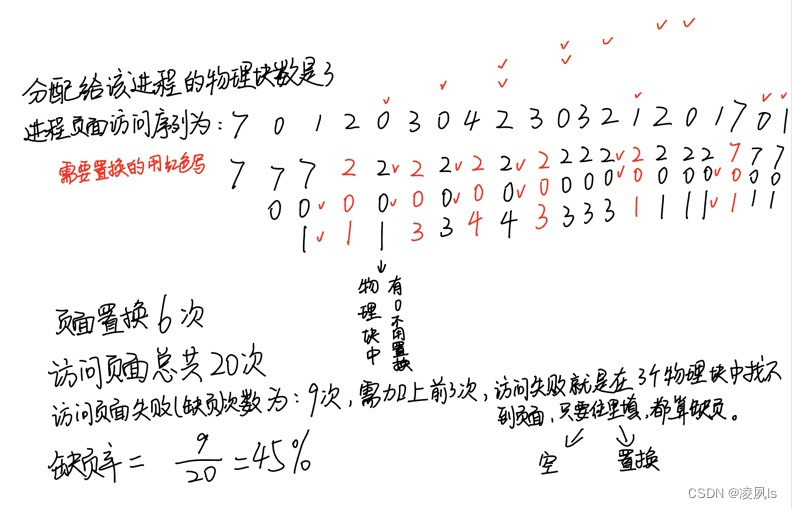 分配给该进程的物理块数是3
进程页面访问序列为: 7 0 1 2 0 3 0 4 2 3 0 3 2 1 2 0 1 7 0 1
需要置换的用红色写 7 7 7 2 2 2 2 2 2 2 2 2 2 2 2 2 2 7 7 7
0 0 0 0 0 0 0 0 0 0 0 0 0 0 0 0 0 0 0
1 1 1 3 3 4 4 3 3 3 3 1 1 1 1 1 1 1
物理块中
有0不用置换
页面置换6次
访问页面总共20次
访问页面失败(缺页)次数为: 9次, 需加上前3次, 访问失败就是在3个物理块中找不
到页面, 只要往里填, 都算缺页。
缺页率 = 9/20 = 45%
空 置换
CSDN @凌夙ls